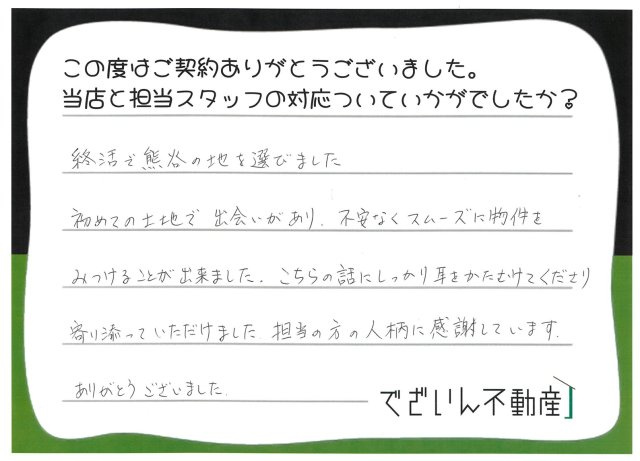 この度はご契約ありがとうございました。
当店と担当スタッフの対応ついていかがでしたか?
終活で熊谷の地を選びました
初めての土地で出会いがあり、不安なくスムーズに物件を
みつけることが出来ました。こちらの話にしっかり耳をかたむけてくださり
寄り添っていただけました。担当の方の人柄に感謝しています。
ありがとうございました。
でざいん不動産